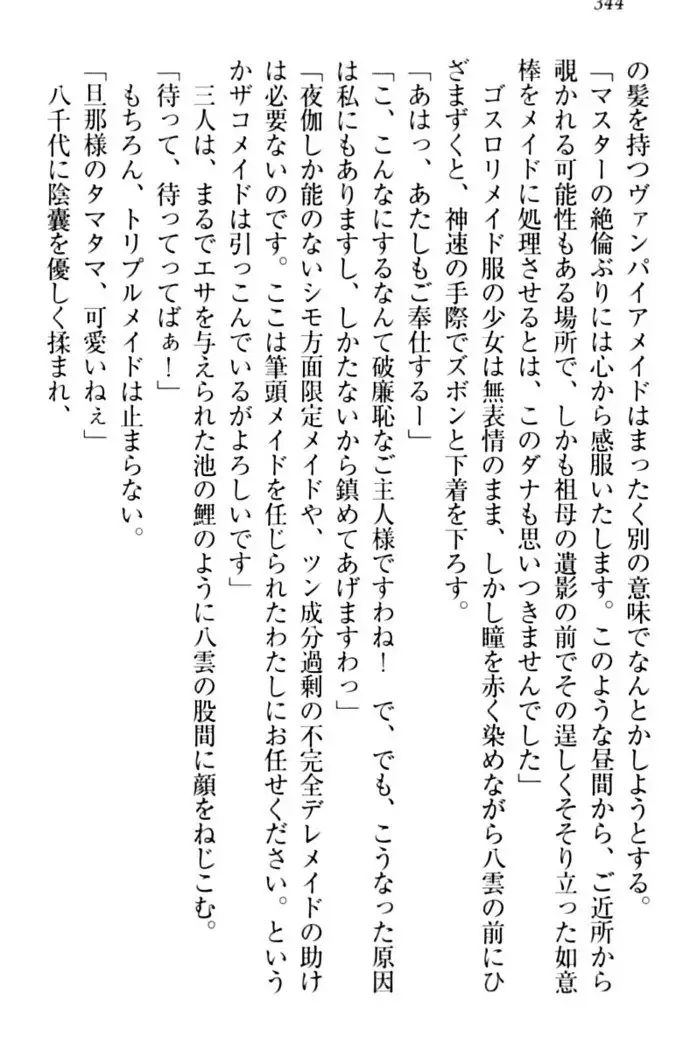 344
の髪を持つヴァンパイアメイドはまったく別の意味でなんとかしようとする。
「マスターの絶倫ぶりには心から感服いたします。このような昼間から、ご近所から
覗かれる可能性もある場所で、しかも祖母の遺影の前でその逞しくそそり立った如意
棒をメイドに処理させるとは、このダナも思いつきませんでした」
ゴスロリメイド服の少女は無表情のまま、しかし瞳を赤く染めながら八雲の前にひ
ざまずくと、神速の手際でズボンと下着を下ろす。
「あはっ、あたしもご奉仕するー」
「こ、こんなにするなんて破廉恥なご主人様ですわね！　で、でも、こうなった原因
は私にもありますし、しかたないから鎮めてあげますわっ」
「夜伽しか能のないシモ方面限定メイドや、ツン成分過剰の不完全デレメイドの助け
は必要ないのです。ここは筆頭メイドを任じられたわたしにお任せください。という
かザコメイドは引っこんでいるがよろしいです」
三人は、まるでエサを与えられた池の鯉のように八雲の股間に顔をねじこむ。
「待って、待ってってばぁ！」
もちろん、トリプルメイドは止まらない。
「旦那様のタマタマ、可愛いねぇ」
八千代に陰嚢を優しく揉まれ、